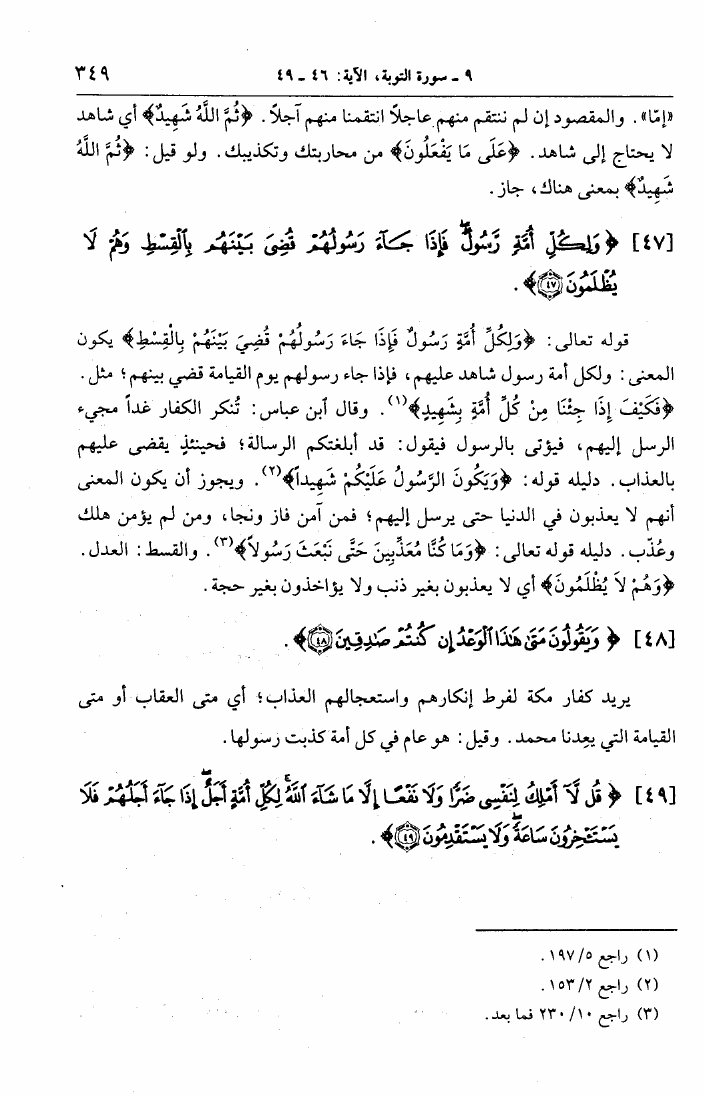 ٩ ـ سورة التوبة، الآية: ٤٦ ـ ٤٩ ٣٤٩
«إمّا». والمقصود إن لم ننتقم منهم عاجلاً انتقمنا منهم آجلاً. ﴿ثُمَّ اللَّهُ شَهِيدٌ﴾ أي شاهد
لا يحتاج إلى شاهد. ﴿عَلَى مَا يَفْعَلُونَ﴾ من محاربتك وتكذيبك. ولو قيل: ﴿ثَمَّ اللَّهُ
شَهِيدٌ﴾ بمعنى هناك، جاز.
[٤٧] ﴿وَلِكُلِّ أُمَّةٍ رَّسُولٌۖ فَإِذَا جَآءَ رَسُولُهُمْ قُضِىَ بَيْنَهُم بِٱلْقِسْطِ وَهُمْ لَا
يُظْلَمُونَ ٤٧﴾.
قوله تعالى: ﴿وَلِكُلِّ أُمَّةٍ رَسُولٌ فَإِذَا جَاءَ رَسُولُهُمْ قُضِيَ بَيْنَهُمْ بِالْقِسْطِ﴾ يكون
المعنى: ولكل أمة رسول شاهد عليهم، فإذا جاء رسولهم يوم القيامة قضي بينهم؛ مثل.
﴿فَكَيْفَ إِذَا جِئْنَا مِنْ كُلِّ أُمَّةٍ بِشَهِيدٍ﴾(١). وقال ابن عباس: تُنكر الكفار غداً مجيء
الرسل إليهم، فيؤتى بالرسول فيقول: قد أبلغتكم الرسالة؛ فحينئذٍ يقضى عليهم
بالعذاب. دليله قوله: ﴿وَيَكُونَ الرَّسُولُ عَلَيْكُمْ شَهِيداً﴾(٢). ويجوز أن يكون المعنى
أنهم لا يعذبون في الدنيا حتى يرسل إليهم؛ فمن آمن فاز ونجا، ومن لم يؤمن هلك
وعُذّب. دليله قوله تعالى: ﴿وَمَا كُنَّا مُعَذِّبِينَ حَتَّى نَبْعَثَ رَسُولاً﴾(٣). والقسط: العدل.
﴿وَهُمْ لاَ يُظْلَمُونَ﴾ أي لا يعذبون بغير ذنب ولا يؤاخذون بغير حجة.
[٤٨] ﴿وَيَقُولُونَ مَتَىٰ هَٰذَا ٱلْوَعْدُ إِن كُنتُمْ صَٰدِقِينَ ٤٨﴾.
يريد كفار مكة لفرط إنكارهم واستعجالهم العذاب؛ أي متى العقاب أو متى
القيامة التي يعِدنا محمد. وقيل: هو عام في كل أمة كذبت رسولها.
[٤٩] ﴿قُل لَّآ أَمْلِكُ لِنَفْسِى ضَرًّا وَلَا نَفْعًا إِلَّا مَا شَآءَ ٱللَّهُۗ لِكُلِّ أُمَّةٍ أَجَلٌۚ إِذَا جَآءَ أَجَلُهُمْ فَلَا
يَسْتَـْٔخِرُونَ سَاعَةً وَلَا يَسْتَقْدِمُونَ ٤٩﴾.
(١) راجع ١٩٧/٥.
(٢) راجع ١٥٣/٢.
(٣) راجع ٢٣٠/١٠ فما بعد.